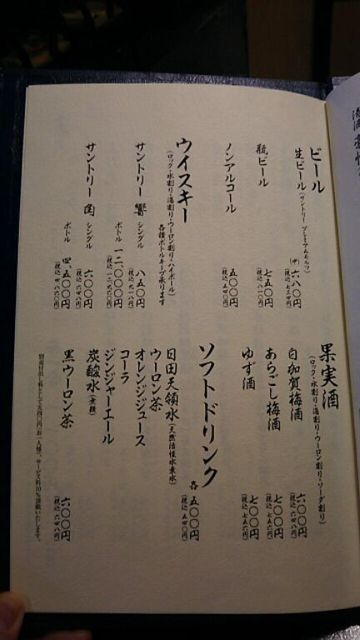 ビール
生ビール(サントリー プレミアムモルツ) (中) 六八〇円
(税込 七三四円)
瓶ビール 七五〇円
(税込 八一〇円)
ノンアルコール 五〇〇円
(税込 五四〇円)
ウイスキー
(ロック・水割り・湯割り・ウーロン割り・ハイボール)
各種ボトルキープ承ります
サントリー 響 シングル 八五〇円
(税込 九一八円)
ボトル 一二、〇〇〇円
(税込 一二、九六〇円)
サントリー 角 シングル 六〇〇円
(税込 六四八円)
ボトル 四、五〇〇円
(税込 四、八六〇円)
果実酒
(ロック・水割り・湯割り・ウーロン割り・ソーダ割り)
白加賀梅酒 六〇〇円
(税込 六四八円)
あらごし梅酒 七〇〇円
(税込 七五六円)
ゆず酒 七〇〇円
(税込 七五六円)
ソフトドリンク 各 五〇〇円
(税込 五四〇円)
日田天領水(天然活性水素水)
ウーロン茶
オレンジジュース
コーラ
ジンジャーエール
炭酸水
黒ウーロン茶 六〇〇円
(税込 六四八円)